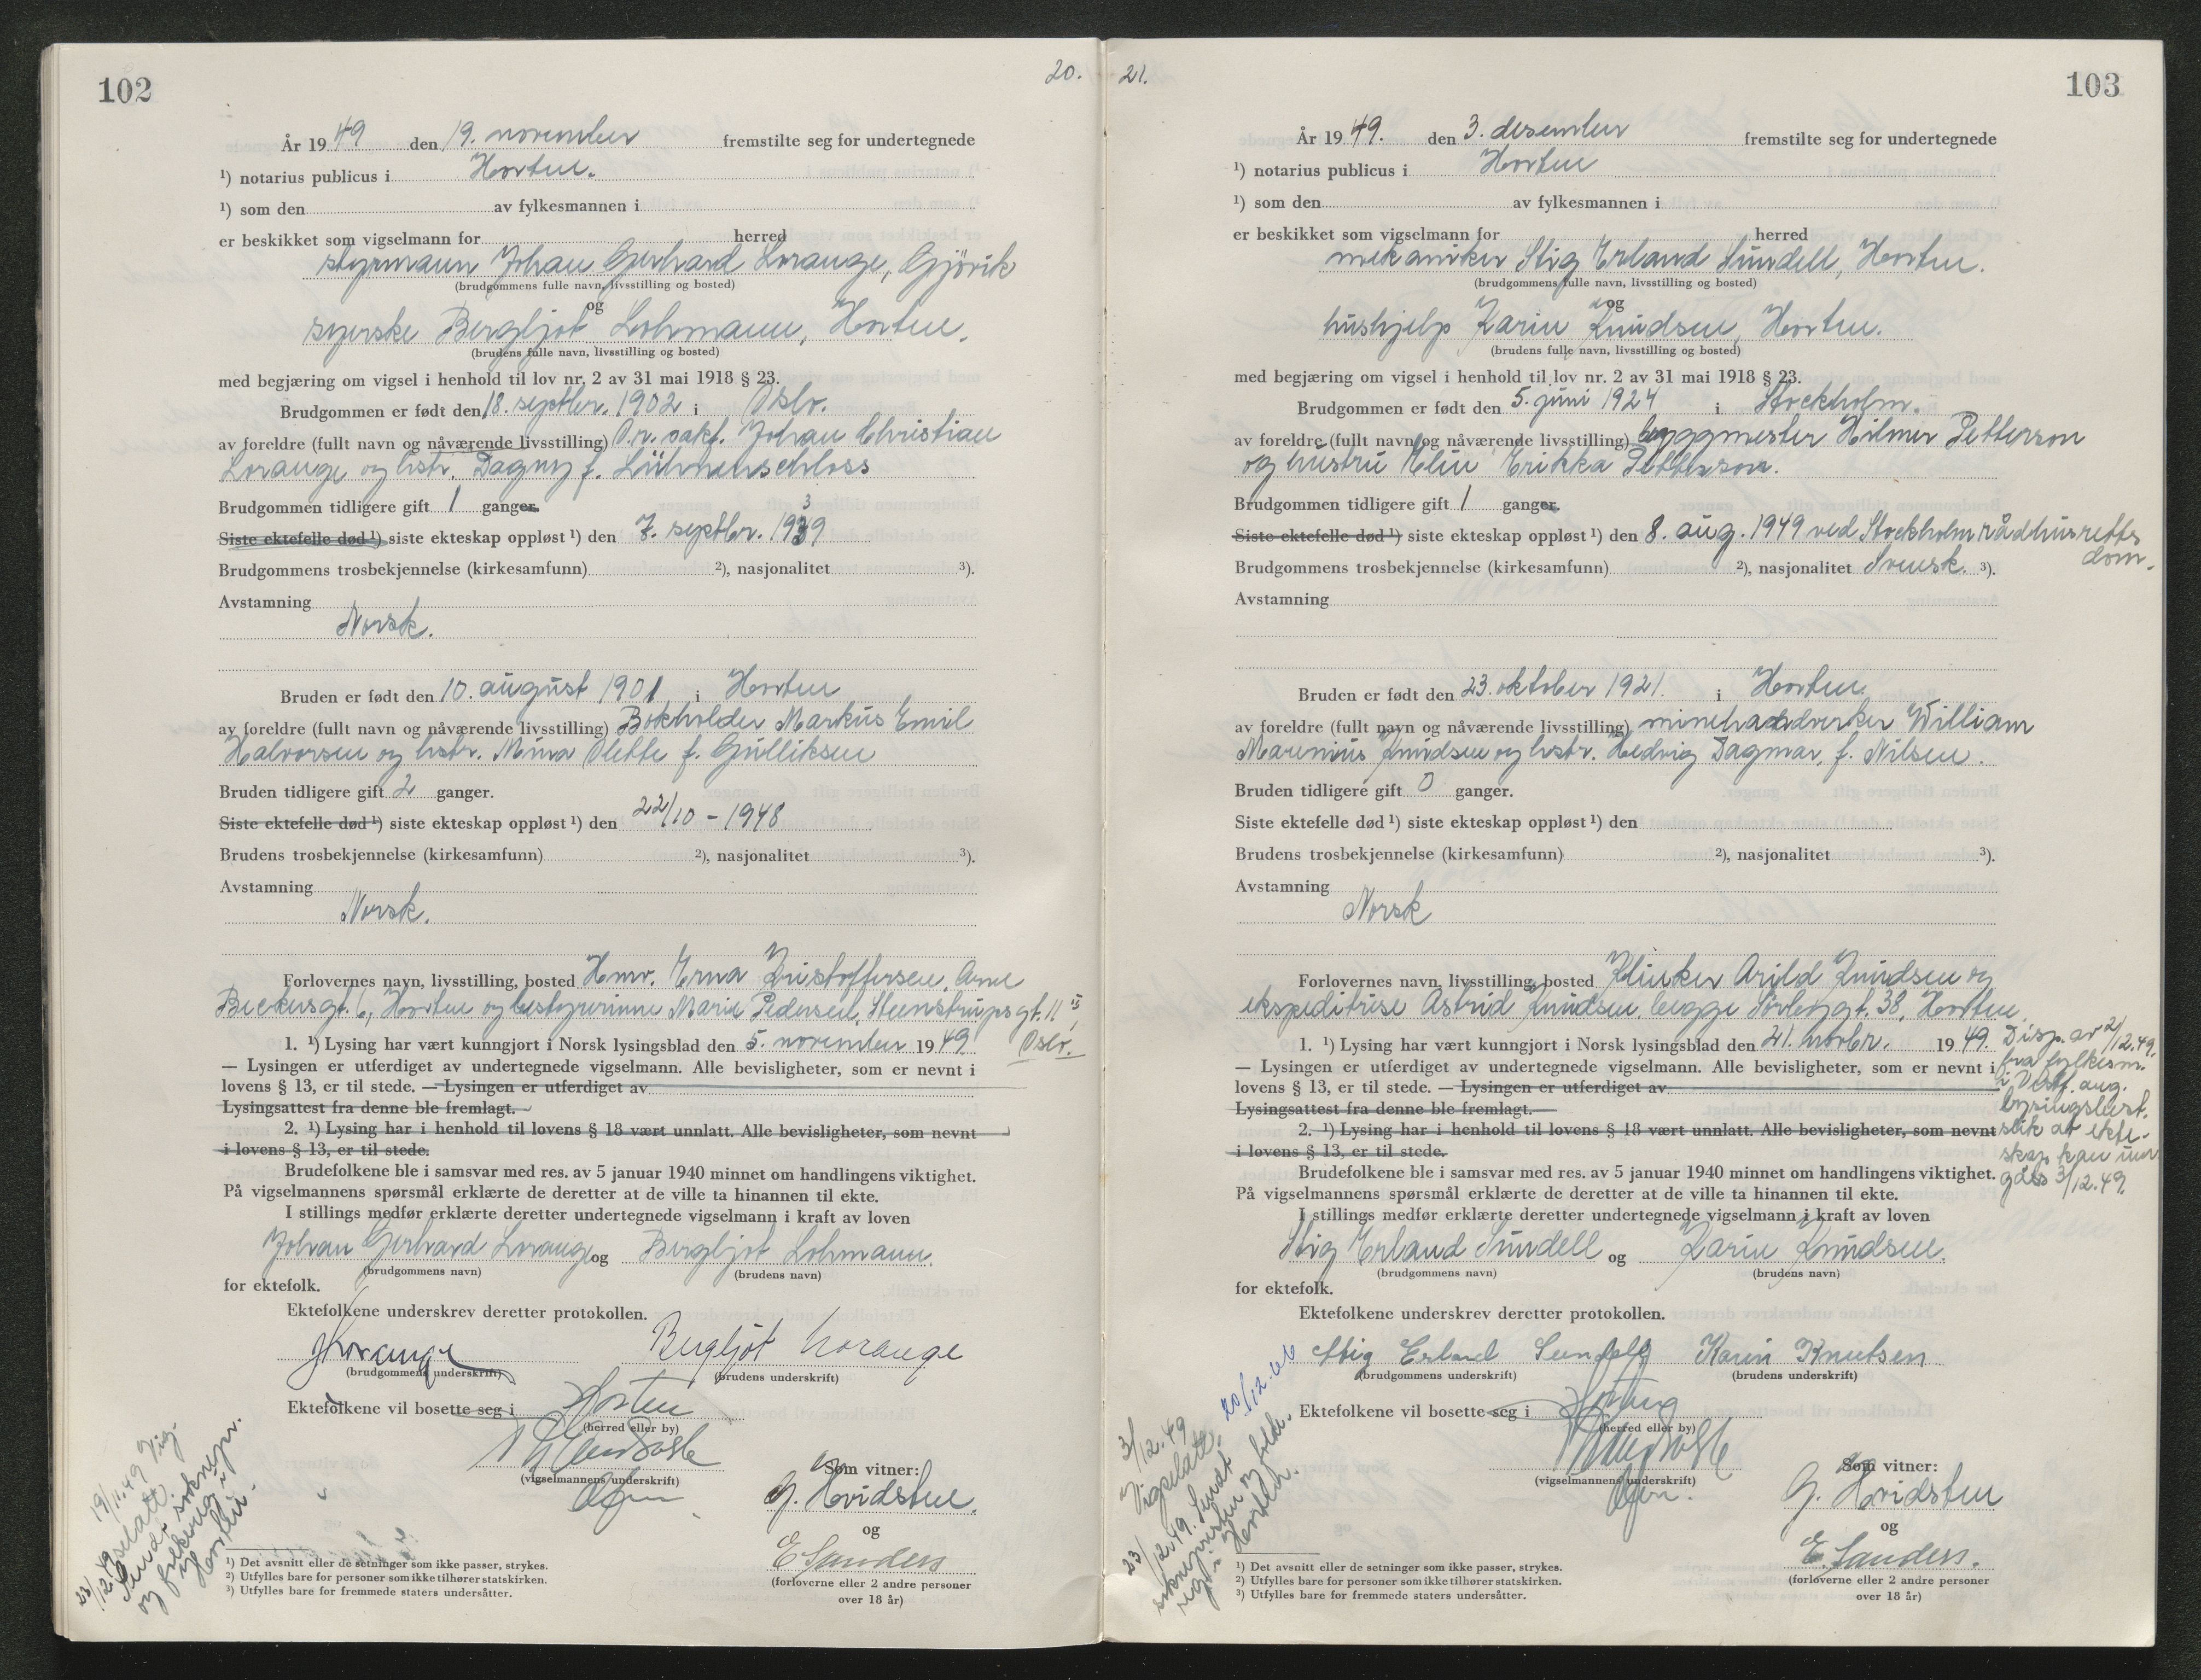 102
20.
År 1949 den 19. november fremstilte seg for undertegnede
¹) notarius publicus i Horten.
¹) som den av fylkesmannen i
er beskikket som vigselmann for herred
styrmann Johan Gerhard Lorange, Gjövik
(brudgommens fulle navn, livsstilling og bosted)
og
syerske Bergljot Lohmann, Horten.
(brudens fulle navn, livsstilling og bosted)
med begjæring om vigsel i henhold til lov nr. 2 av 31 mai 1918 § 23.
Brudgommen er født den 18. septbr. 1902 i Oslo.
av foreldre (fullt navn og nåværende livsstilling) O.r. sakf. Johan Christian
Lorange og hstr. Dagny f. Lühmenschloss
Brudgommen tidligere gift 1 ganger.
Siste ektefelle død ¹) siste ekteskap oppløst ¹) den 7. septbr. 1939
Brudgommens trosbekjennelse (kirkesamfunn) ²), nasjonalitet ³).
Avstamning
Norsk.
Bruden er født den 10. august 1901 i Horten
av foreldre (fullt navn og nåværende livsstilling) Bokholder Markus Emil
Halvorsen og hstr. Mina Olette f. Gulliksen
Bruden tidligere gift 2 ganger.
Siste ektefelle død ¹) siste ekteskap oppløst ¹) den 22/10 - 1948
Brudens trosbekjennelse (kirkesamfunn) ²), nasjonalitet ³).
Avstamning
Norsk.
Forlovernes navn, livsstilling, bosted Hmv. Erna Kristoffersen, Arne
Bickersgt. 6, Horten og bestyrerinne Marie Pedersen, Steenstrupsgt. 11
Oslo.
1. ¹) Lysing har vært kunngjort i Norsk lysingsblad den 5. november 1949
— Lysingen er utferdiget av undertegnede vigselmann. Alle bevisligheter, som er nevnt i
lovens § 13, er til stede. — Lysingen er utferdiget av
Lysingsattest fra denne ble fremlagt.
2. ¹) Lysing har i henhold til lovens § 18 vært unnlatt. Alle bevisligheter, som nevnt
i lovens § 13, er til stede.
Brudefolkene ble i samsvar med res. av 5 januar 1940 minnet om handlingens viktighet.
På vigselmannens spørsmål erklærte de deretter at de ville ta hinannen til ekte.
I stillings medfør erklærte deretter undertegnede vigselmann i kraft av loven
Johan Gerhard Lorange og Bergljot Lohmann.
(brudgommens navn) (brudens navn)
for ektefolk.
Ektefolkene underskrev deretter protokollen.
JLorange Bergljot Lorange
(brudgommens underskrift) (brudens underskrift)
Ektefolkene vil bosette seg i Horten
(herred eller by)
(vigselmannens underskrift)
Som vitner:
G. Hvidsten.
og
E Sanders
(forloverne eller 2 andre personer
over 18 år)
19/11.49 Vig-
selatt.
23/12.49
Sendt soknepr.
og folkereg. i
Horten.
¹) Det avsnitt eller de setninger som ikke passer, strykes.
²) Utfylles bare for personer som ikke tilhører statskirken.
³) Utfylles bare for fremmede staters undersåtter.
21.
103
År 1949. den 3. desember fremstilte seg for undertegnede
¹) notarius publicus i Horten
¹) som den av fylkesmannen i
er beskikket som vigselmann for herred
mekaniker Stig Erland Sundell, Horten.
(brudgommens fulle navn, livsstilling og bosted)
og
hushjelp Karin Knudsen, Horten.
(brudens fulle navn, livsstilling og bosted)
med begjæring om vigsel i henhold til lov nr. 2 av 31 mai 1918 § 23.
Brudgommen er født den 5. juni 1924 i Stockholm.
av foreldre (fullt navn og nåværende livsstilling) byggmester Hilmer Petterson
og hustru Elin Erikka Petterson.
Brudgommen tidligere gift 1 ganger.
Siste ektefelle død ¹) siste ekteskap oppløst ¹) den 8. aug. 1949 ved Stockholm rådhusretts
dom.
Brudgommens trosbekjennelse (kirkesamfunn) ²), nasjonalitet Svensk. ³).
Avstamning
Bruden er født den 23. oktober 1921. i Horten.
av foreldre (fullt navn og nåværende livsstilling) minehandverker William
Marenius Knudsen og hstr. Hedvig Dagmar, f. Nilsen.
Bruden tidligere gift 0 ganger.
Siste ektefelle død ¹) siste ekteskap oppløst ¹) den
Brudens trosbekjennelse (kirkesamfunn) ²), nasjonalitet ³).
Avstamning
Norsk
Forlovernes navn, livsstilling, bosted Klinker Arild Knudsen og
ekspeditrise Astrid Knudsen, begge Sørbygt. 38, Horten.
1. ¹) Lysing har vært kunngjort i Norsk lysingsblad den 21. novbr. 1949.
— Lysingen er utferdiget av undertegnede vigselmann. Alle bevisligheter, som er nevnt i
lovens § 13, er til stede. — Lysingen er utferdiget av
Lysingsattest fra denne ble fremlagt.—
2. ¹) Lysing har i henhold til lovens § 18 vært unnlatt. Alle bevisligheter, som nevnt
i lovens § 13, er til stede.
Disp. av 2/12.49.
fra fylkesm.
i Vestf. ang.
lysingsbest.
slik at ekte-
skap kan inn
gåes 3/12.49.
Brudefolkene ble i samsvar med res. av 5 januar 1940 minnet om handlingens viktighet.
På vigselmannens spørsmål erklærte de deretter at de ville ta hinannen til ekte.
I stillings medfør erklærte deretter undertegnede vigselmann i kraft av loven
Stig Erland Sundell og Karin Knudsen.
(brudgommens navn) (brudens navn)
for ektefolk.
Ektefolkene underskrev deretter protokollen.
Stig Erland Sundell Karin Knutsen
(brudgommens underskrift) (brudens underskrift)
Ektefolkene vil bosette seg i Horten
(herred eller by)
(vigselmannens underskrift)
Som vitner:
G. Hvidsten
og
E. Sanders.
(forloverne eller 2 andre personer
over 18 år)
20/12.66
3/12.49
Vigselatt.
23/12.49. Sendt
soknepresten og folke-
reg. i Horten.
¹) Det avsnitt eller de setninger som ikke passer, strykes.
²) Utfylles bare for personer som ikke tilhører statskirken.
³) Utfylles bare for fremmede staters undersåtter.